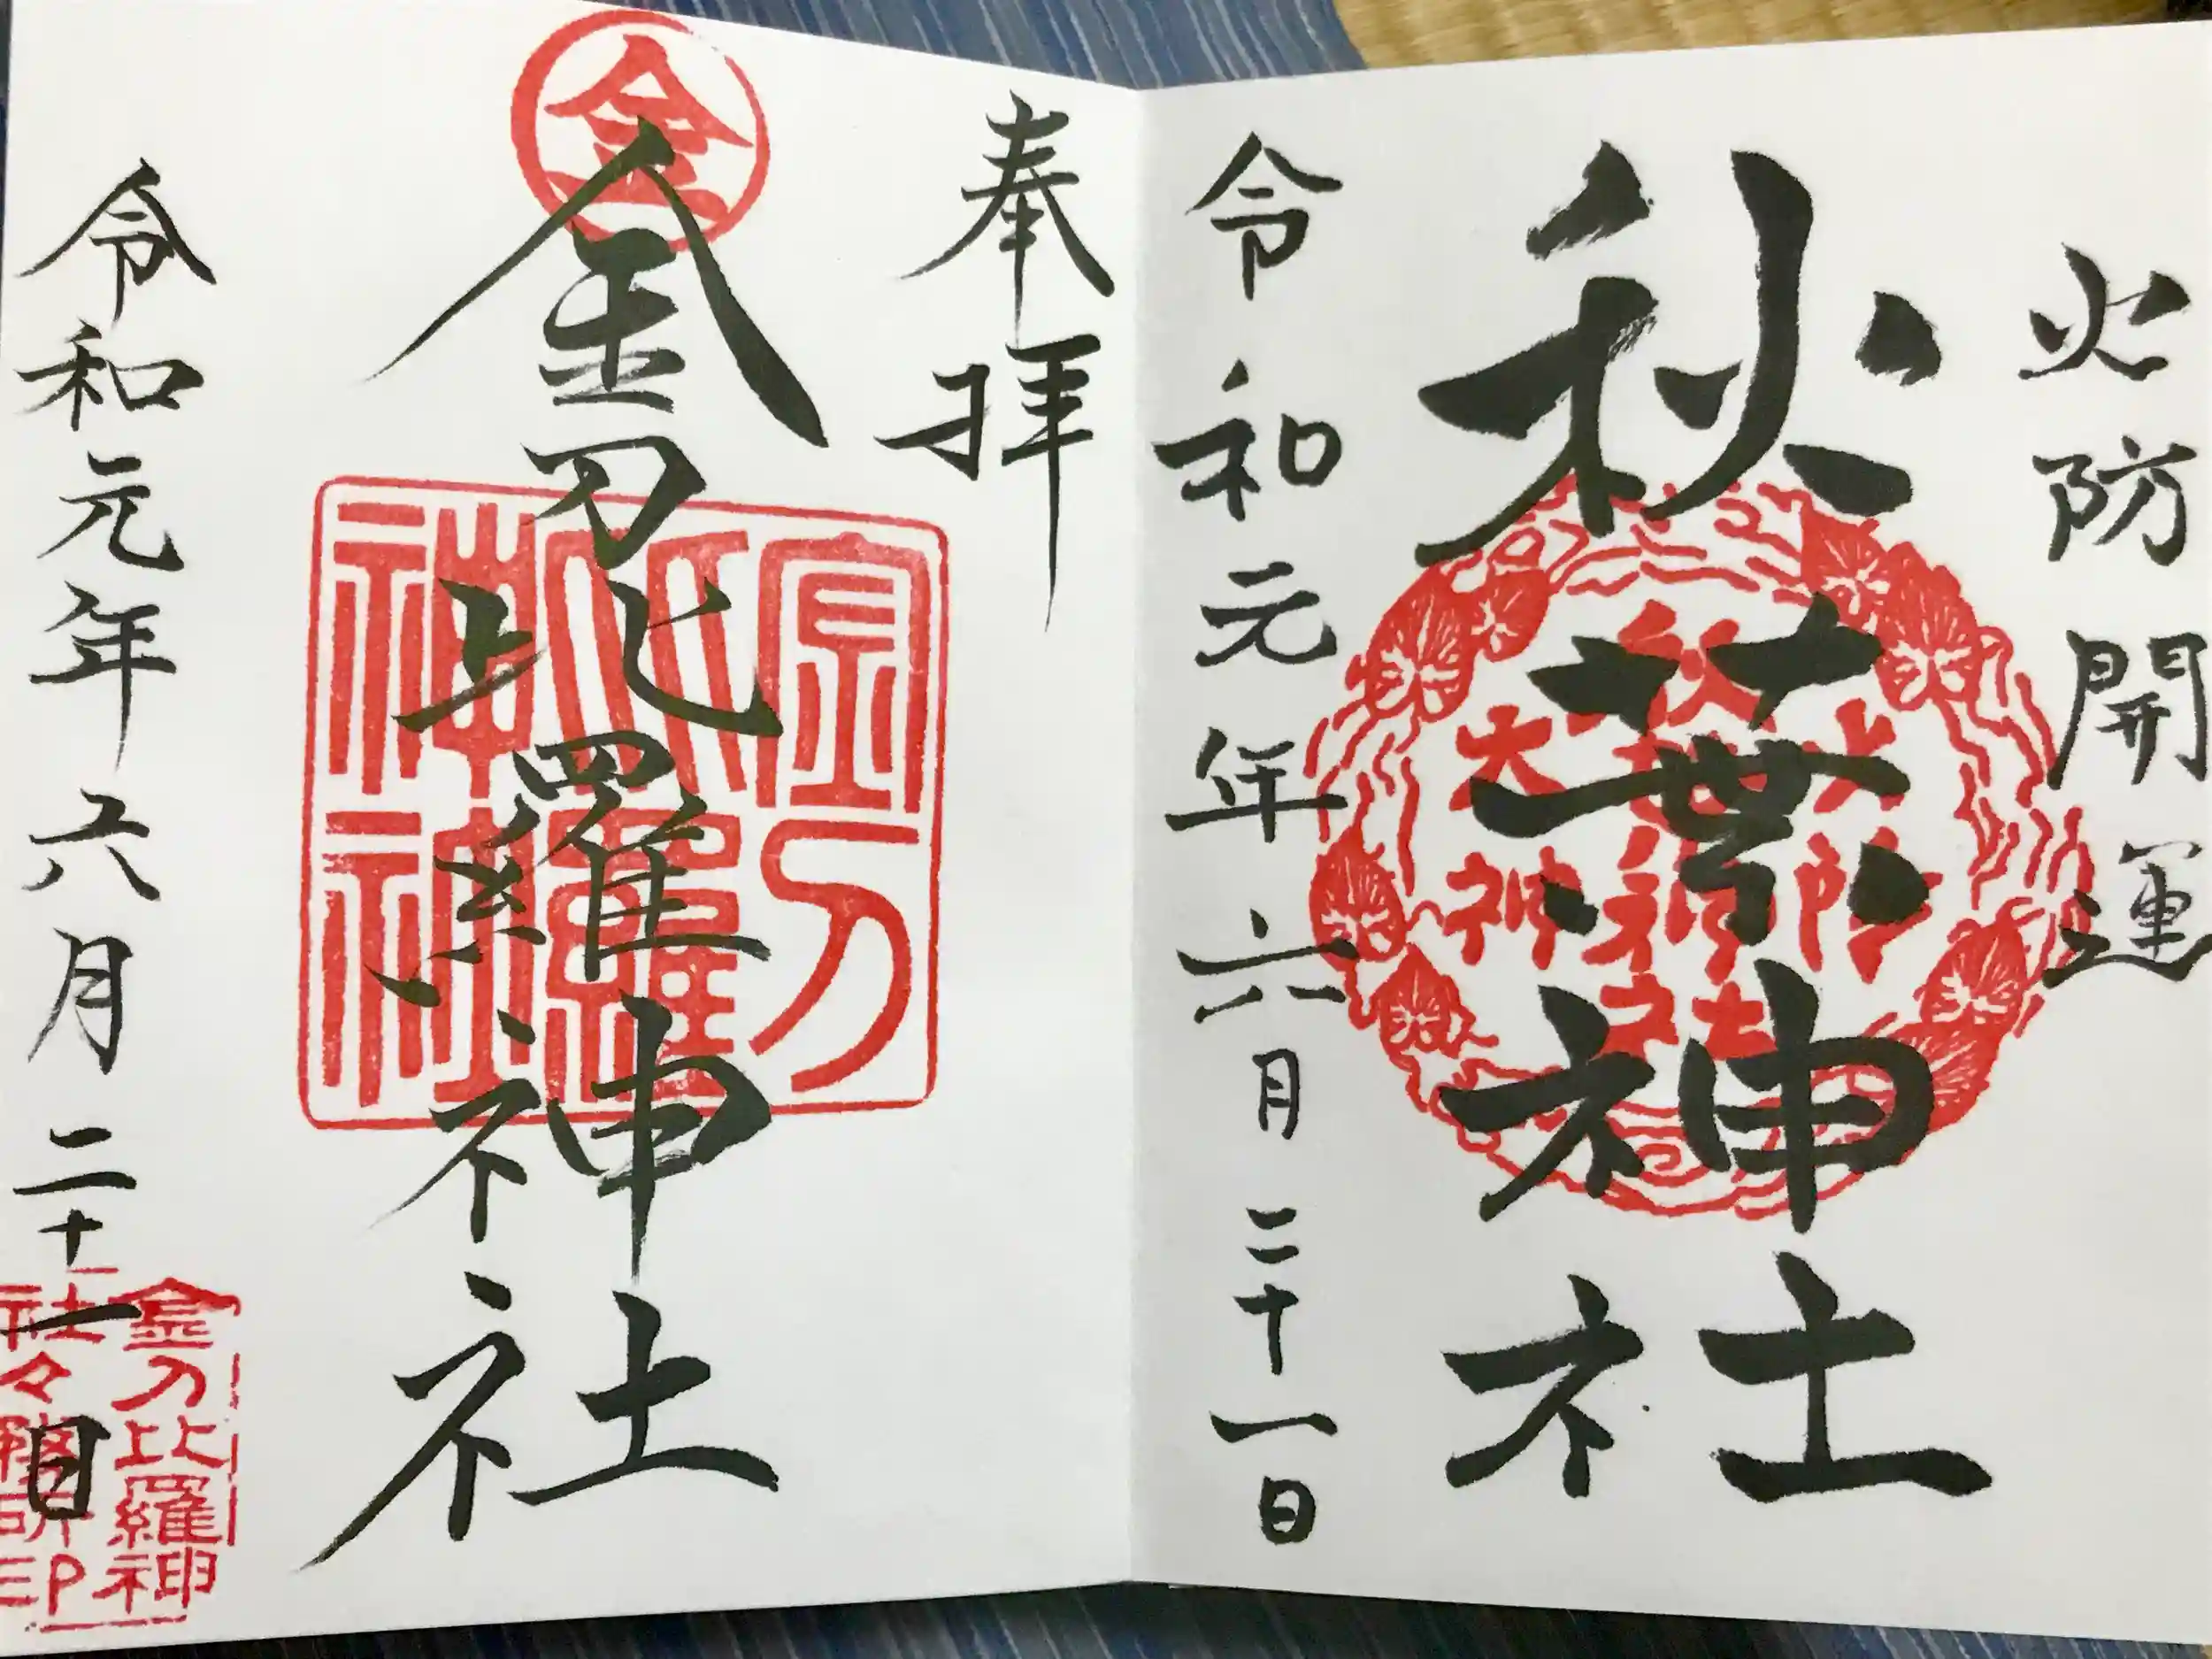 火防開運
秋葉神社
火防
秋葉神社
大神
令和元年六月二十一日
奉拝
金
金刀比羅神社
金刀
比羅
神社
令和元年六月二十一日
金刀比羅神
社々務所印